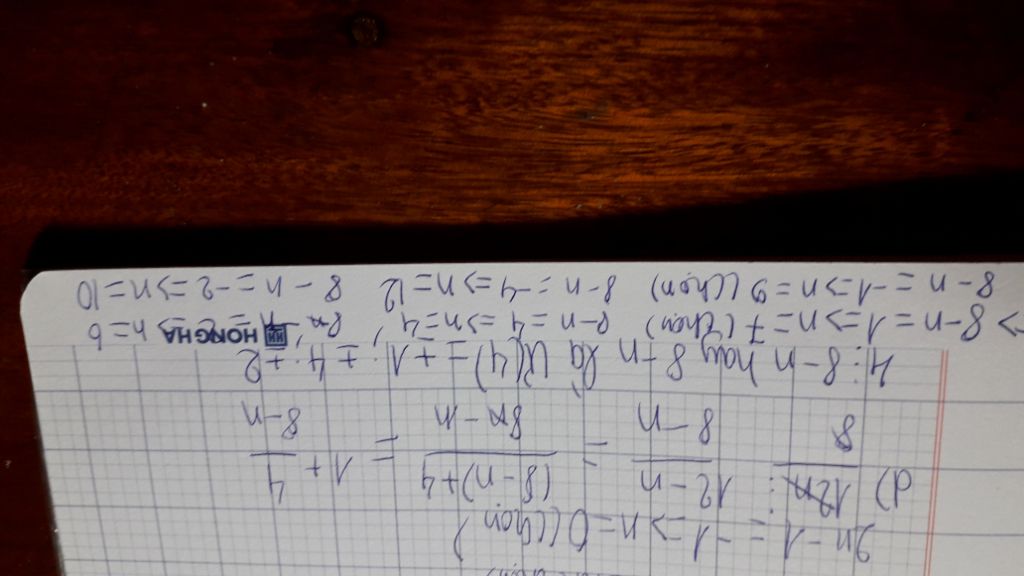 2n - 1 = -1 => n = 0 (Chọn)
d) 12n : 12 - n / 8 - n = (8 - n) + 4 / 8 - n = 1 + 4 / 8 - n
4 : 8 - n hay 8 - n là Ư(4) = ± 1 ; ± 4 ; ± 2
=> 8 - n = 1 => n = 7 (Chọn) 8 - n = 4 => n = 4 ; 8 - n = 2 => n = 6
HONGHA
8 - n = -1 => n = 9 (Chọn) 8 - n = -4 => n = 12 8 - n = -2 => n = 10